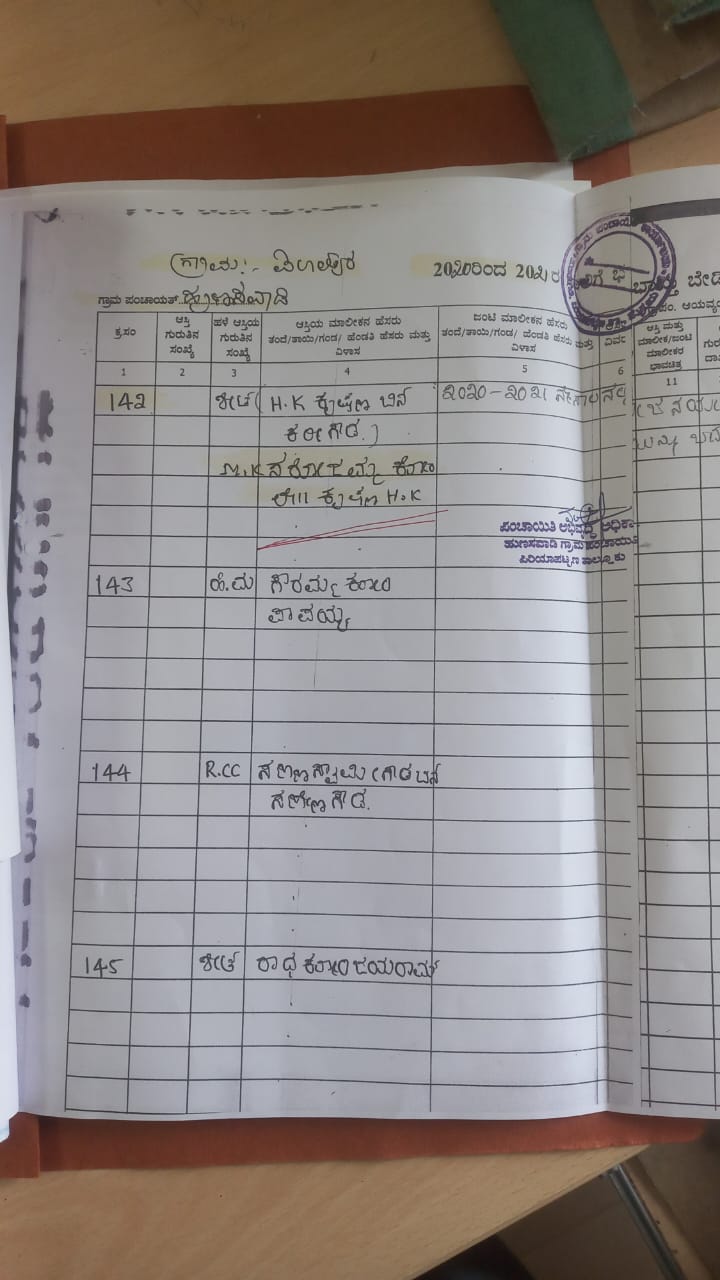 ಗ್ರಾಮ:-
2020ರಿಂದ 2021 ರ
ಗ್ರಾಮ ಪಂಚಾಯತ್
ಕ್ರಸಂ
ಆಸ್ತಿ ಗುರುತಿನ ಸಂಖ್ಯೆ
ಹಳೆ ಆಸ್ತಿಯ ಗುರುತಿನ ಸಂಖ್ಯೆ
ಆಸ್ತಿಯ ಮಾಲೀಕನ ಹೆಸರು
ತಂದೆ/ತಾಯಿ/ಗಂಡ/ ಹೆಂಡತಿ ಹೆಸರು ಮತ್ತು
ವಿಳಾಸ
ಜಂಟಿ ಮಾಲೀಕನ ಹೆಸರು
ತಂದೆ/ತಾಯಿ/ಗಂಡ/ ಹೆಂಡತಿ ಹೆಸರು ಮತ್ತು
ವಿಳಾಸ
ಆಸ್ತಿ ಮತ್ತು
ಮಾಲೀಕ/ಜಂಟಿ
ಮಾಲೀಕರ
ಭಾವಚಿತ್ರ
1 2 3 4 5 6 11
142 ಶೀಟ್ H.K ಕೃಷ್ಣ ಬಿನ್ 2020-2021
ಕರೀಗೌಡ
M.K ಸರೋಜಮ್ಮ ಕೋಂ
ಲೇ|| ಕೃಷ್ಣ H.K
ಪಂಚಾಯಿತಿ ಅಭಿವೃದ್ಧಿ ಅಧಿಕಾ
ಹುಣಸವಾಡಿ ಗ್ರಾಮ ಪಂಚಾಯಿತಿ
ಪಿರಿಯಾಪಟ್ಟಣ ತಾಲ್ಲೂಕು
143 ಹೆ.ಮ ಗೌರಮ್ಮ ಕೋಂ
ಪಾಪಯ್ಯ
144 R.CC ಸಣ್ಣಸ್ವಾಮಿಗೌಡ ಬಿನ್
ಸಣ್ಣೇಗೌಡ.
145 ಶೀಟ್ ರಾಧ ಕೋಂ ಜಯರಾಮ್